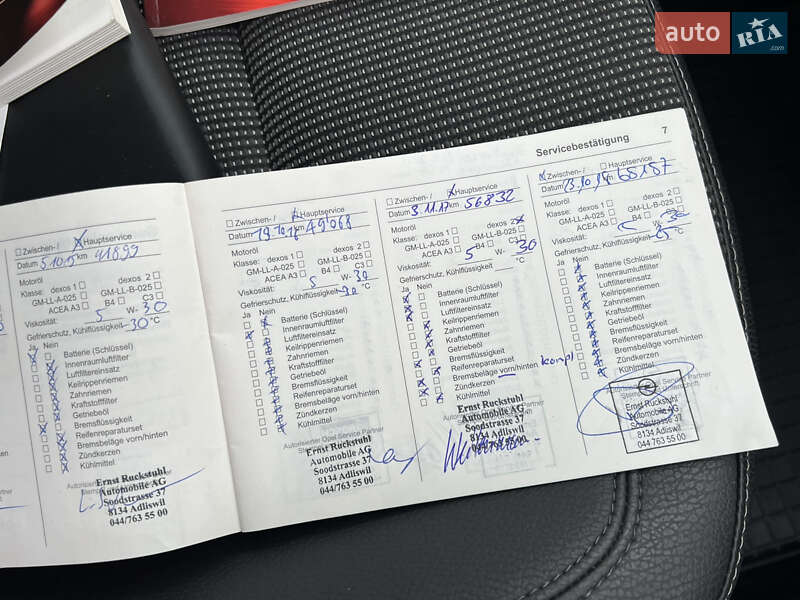 auto RIA.com
Servicebestätigung 7
Zwischen- / Hauptservice
Datum 5.10.15 km 41899
Motoröl
Klasse: dexos 1 dexos 2
GM-LL-A-025 GM-LL-B-025
ACEA A3 B4 C3
Viskosität: 5 W- 30
Gefrierschutz, Kühlflüssigkeit -30 °C
Ja Nein
Batterie (Schlüssel)
Innenraumluftfilter
Luftfiltereinsatz
Keilrippenriemen
Zahnriemen
Kraftstofffilter
Getriebeöl
Bremsflüssigkeit
Reifenreparaturset
Bremsbeläge vorn/hinten
Zündkerzen
Kühlmittel
Ernst Ruckstuhl
Automobile AG
Soodstrasse 37
8134 Adliswil
044/763 55 00
Zwischen- / Hauptservice
Datum 19.10.16 km 49'068
Motoröl
Klasse: dexos 1 dexos 2
GM-LL-A-025 GM-LL-B-025
ACEA A3 B4 C3
Viskosität: 5 W- 30
Gefrierschutz, Kühlflüssigkeit -30 °C
Ja Nein
Batterie (Schlüssel)
Innenraumluftfilter
Luftfiltereinsatz
Keilrippenriemen
Zahnriemen
Kraftstofffilter
Getriebeöl
Bremsflüssigkeit
Reifenreparaturset
Bremsbeläge vorn/hinten
Zündkerzen
Kühlmittel
Autorisierter Opel Service Partner
Ernst Ruckstuhl
Automobile AG
Soodstrasse 37
8134 Adliswil
044/763 55 00
Zwischen- / Hauptservice
Datum 3.11.17 km 56832
Motoröl
Klasse: dexos 1 dexos 2
GM-LL-A-025 GM-LL-B-025
ACEA A3 B4 C3
Viskosität: 5 W- 30
Gefrierschutz, Kühlflüssigkeit °C
Ja Nein
Batterie (Schlüssel)
Innenraumluftfilter
Luftfiltereinsatz
Keilrippenriemen
Zahnriemen
Kraftstofffilter
Getriebeöl
Bremsflüssigkeit
Reifenreparaturset
Bremsbeläge vorn/hinten kompl
Zündkerzen
Kühlmittel
Ernst Ruckstuhl
Automobile AG
Soodstrasse 37
8134 Adliswil
044/763 55 00
Zwischen- / Hauptservice
Datum 13.10.18 km 65187
Motoröl
Klasse: dexos 1 dexos 2
GM-LL-A-025 GM-LL-B-025
ACEA A3 B4 C3
Viskosität: W- 30
Gefrierschutz, Kühlflüssigkeit °C
Ja Nein
Batterie (Schlüssel)
Innenraumluftfilter
Luftfiltereinsatz
Keilrippenriemen
Zahnriemen
Kraftstofffilter
Getriebeöl
Bremsflüssigkeit
Reifenreparaturset
Bremsbeläge vorn/hinten
Zündkerzen
Kühlmittel
Ernst Ruckstuhl
Automobile AG
Soodstrasse 37
8134 Adliswil
044 763 55 00